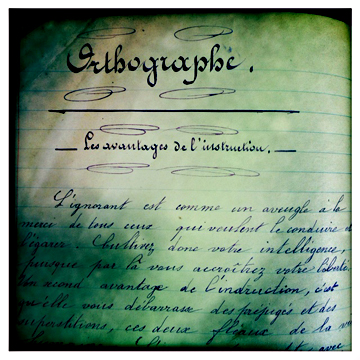 Orthographe.
— Les avantages de l'instruction. —
L'ignorant est comme un aveugle à la
merci de tous ceux qui veulent le conduire et
l'égarer. Cultivez donc votre intelligence,
puisque par là vous accroîtrez votre liberté.
Un second avantage de l'instruction, c'est
qu'elle vous débarrasse des préjugés et des
superstitions, ces deux fléaux de la
avec